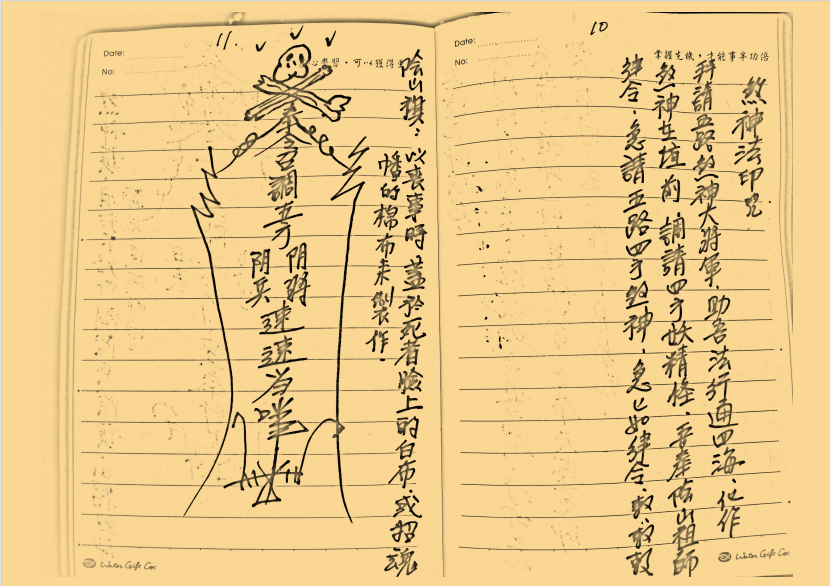 10
Date:
No:
掌握先機，才能事半功倍
煞神法印咒
拜請五路煞神大將軍.助吾法行通四海.化作
煞神在壇前.調請四方妖精怪.吾奉陰山祖師
律令.急請五路四方煞神.急匕如律令.敕.敕敕
Winter Gift Co.
11.
Date:
No:
心學習，可以獲得
陰山祺：以喪事時蓋於死者臉上的白布.或招魂
幡的棉布来製作.
奉
召調五方
阴將
阴兵
速速
Winter Gift Co.